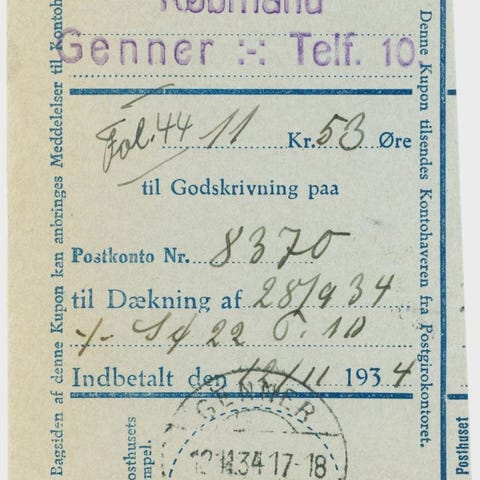 Købmand
Genner :-: Telf. 10
Fol. 44 11 Kr. 53 Øre
til Godskrivning paa
Postkonto Nr. 8370
til Dækning af 28/9 34
22 6.10
Indbetalt den 12/11 1934
GENNER
12.11.34 17-18
Bagsiden af denne Kupon kan anbringes Meddelelser til Kontoh
Denne Kupon tilsendes Kontohaveren fra Postgirokontoret.
osthusets
mpel.
Posthuset